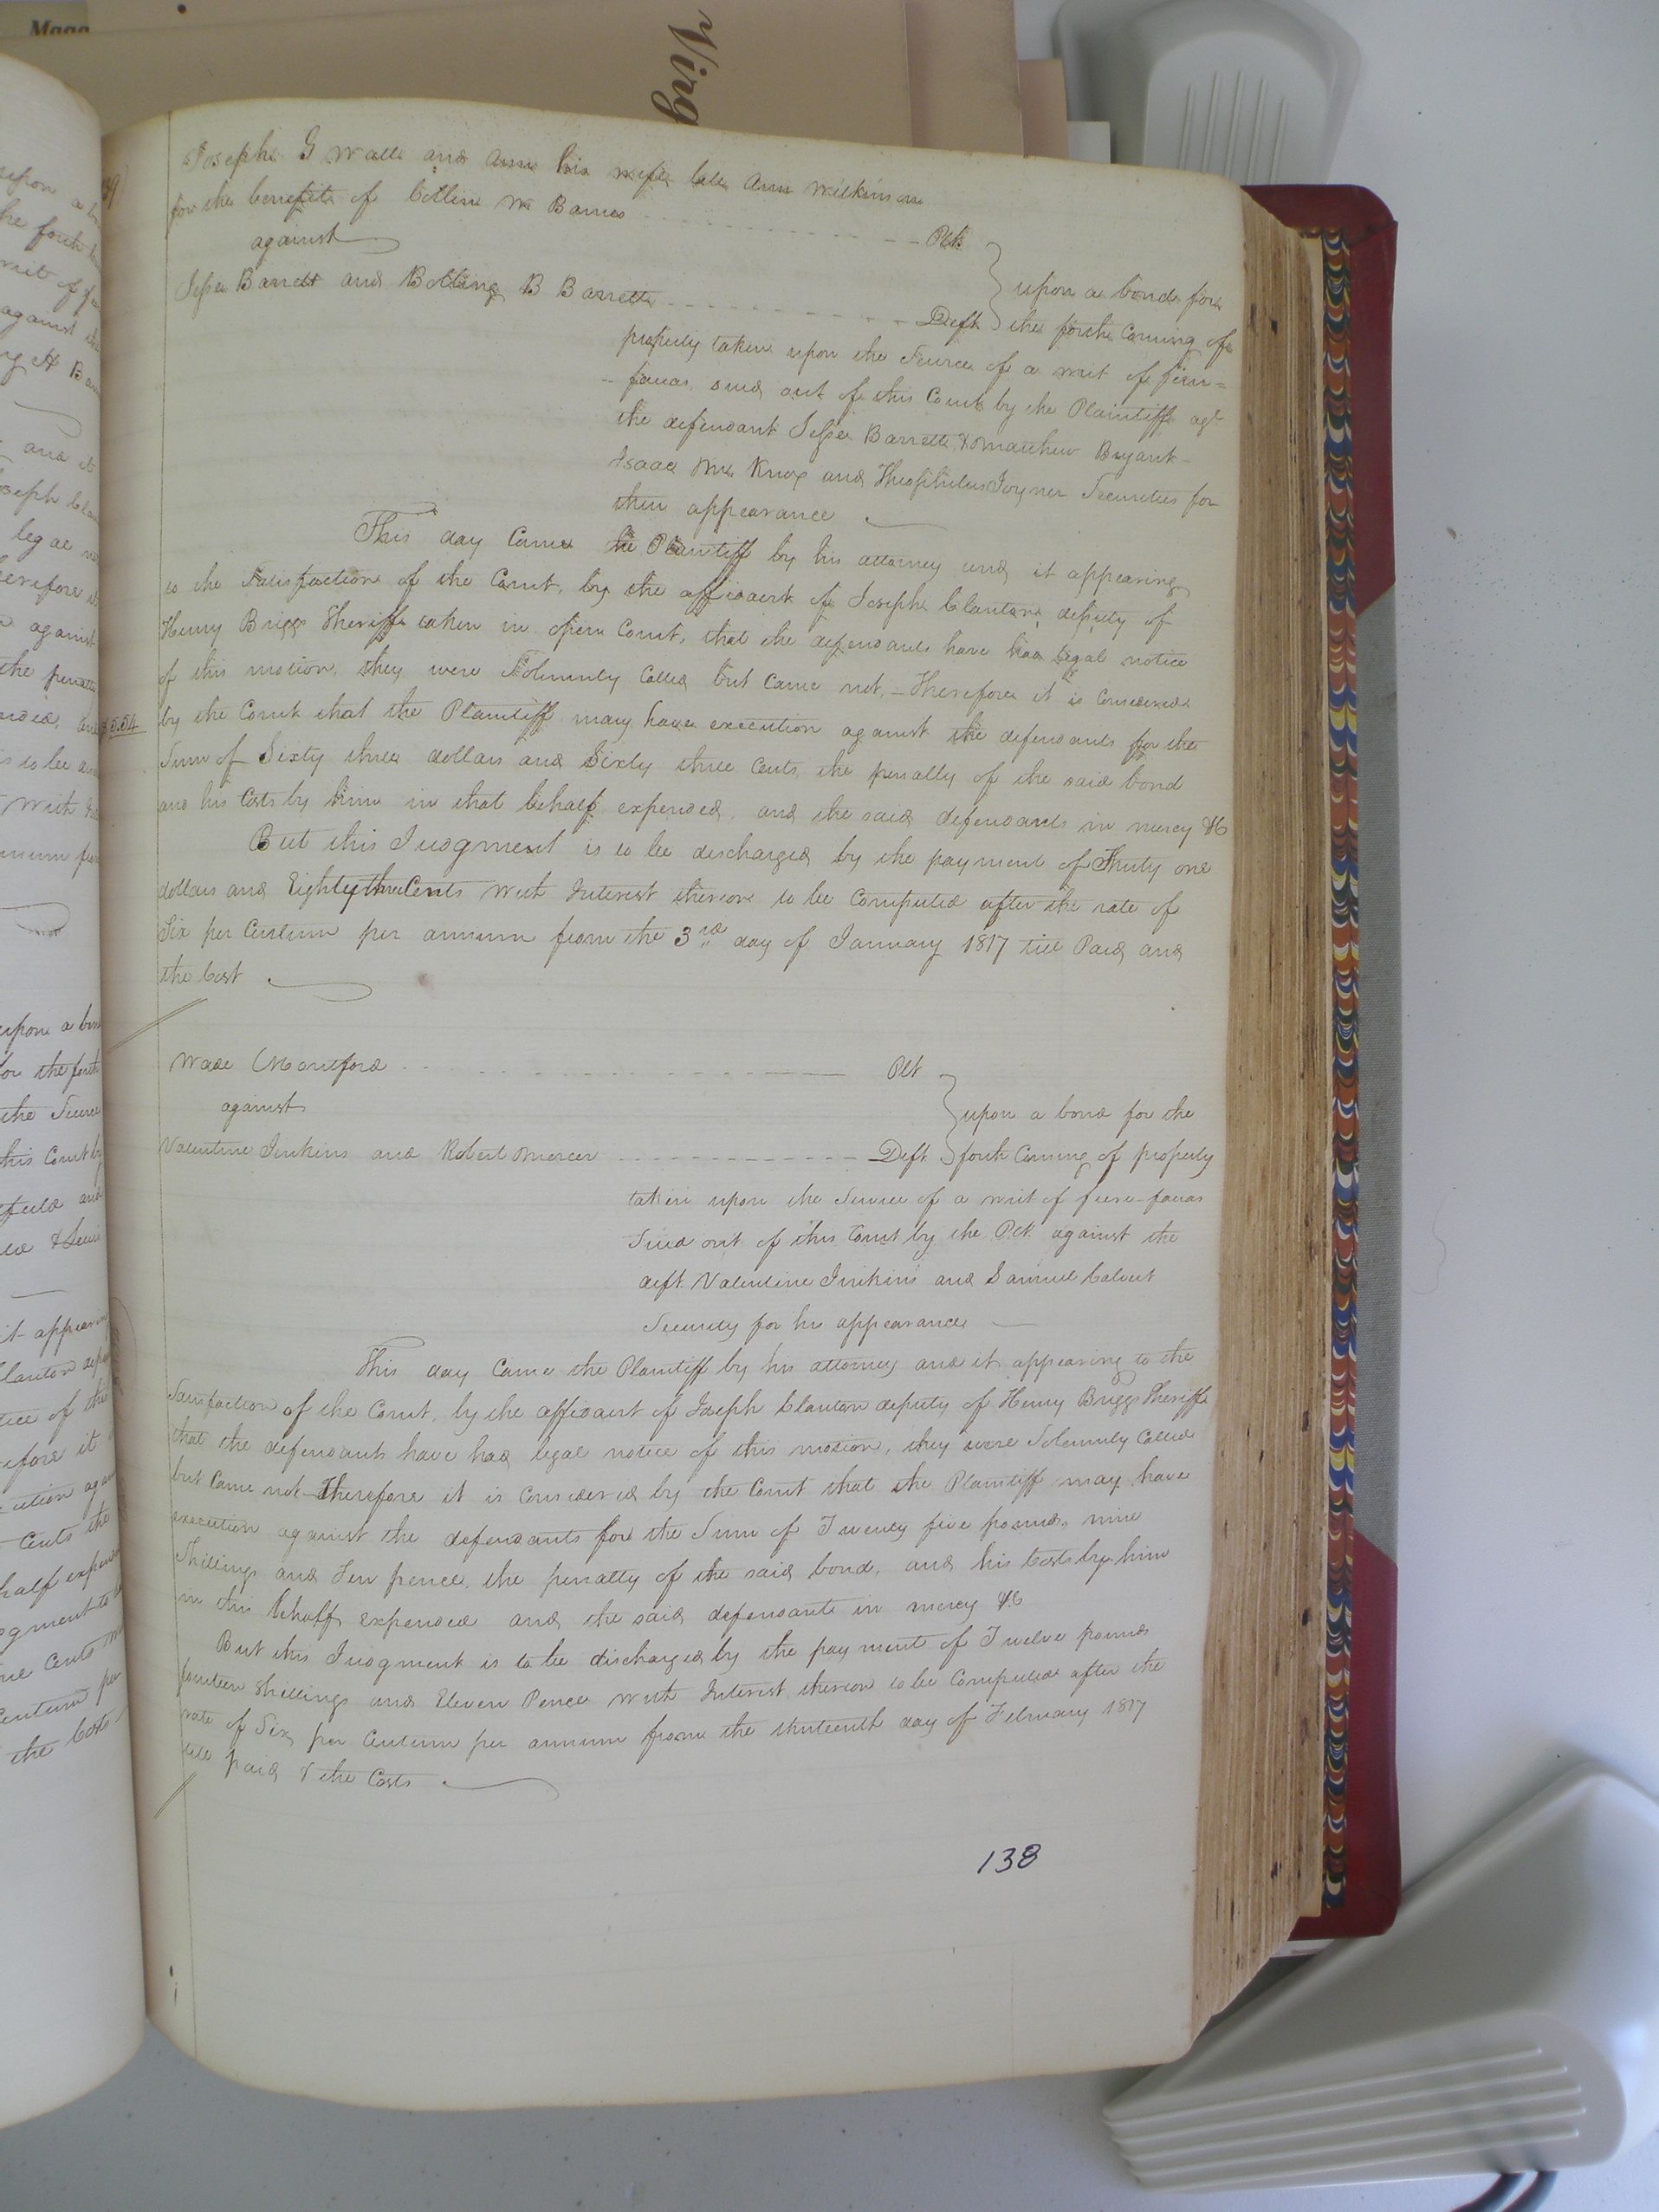 Maga
Virg
Joseph G Walls and Ann his wife late Ann Wilkinson
for the benefit of Collin W Barnes - - - Plts
against
upon a bond for
Jesse Barrett and Bolling B Barrett - - - Defts the forth coming of
property taken upon the Service of a writ of fieri=
- facias sued out of this Court by the Plaintiff agt
the defendant Jesse Barrett, & Matthew Bryant
Isaac Knox and Theophilus Joyner Securities for
their appearance
This day Came the Plaintiff by his attorney and it appearing
to the Satisfaction of the Court, by the affidavit of Joseph Clanton, deputy of
Henry Briggs Sheriff taken in open Court, that the defendants have had legal notice
of this motion, they were Solemnly Called but Came not, - Therefore it is Considered
by the Court that the Plaintiff may have execution against the defendants for the
Sum of Sixty three dollars and Sixty three Cents, the penalty of the said bond
and his Costs by him in that behalf expended, and the said defendants in mercy &C
But this Judgment is to be discharged by the payment of Thirty one
dollars and Eighty three Cents with Interest thereon to be Computed after the rate of
Six per Centum per annum from the 3rd day of January 1817 till Paid and
the Cost
Wade Mountford - - - Plt
against
upon a bond for the
Valentine Jinkins and Robert Mercer - - - Deft forth Coming of property
taken upon the Service of a writ of fiere-facias
Sued out of this Court by the Plt against the
deft Valentine Jinkins and Samuel Calvert
Security for his appearance
This day Came the Plaintiff by his attorney and it appearing to the
Satisfaction of the Court, by the affidavit of Joseph Clanton deputy of Henry Briggs Sheriff
that the defendants have had legal notice of this motion, they were Solemnly Called
but Came not - Therefore it is Considered by the Court that the Plaintiff may have
execution against the defendants for the Sum of Twenty five pounds nine
Shillings and Ten pence, the penalty of the said bond, and his Costs by him
in this behalf expended and the said defendants in mercy &C
But this Judgment is to be discharged by the payment of Twelve pounds
fourteen Shillings and Eleven Pence with Interest thereon to be Computed after the
rate of Six per Centum per annum from the thirteenth day of February 1817
till paid & the Costs
138